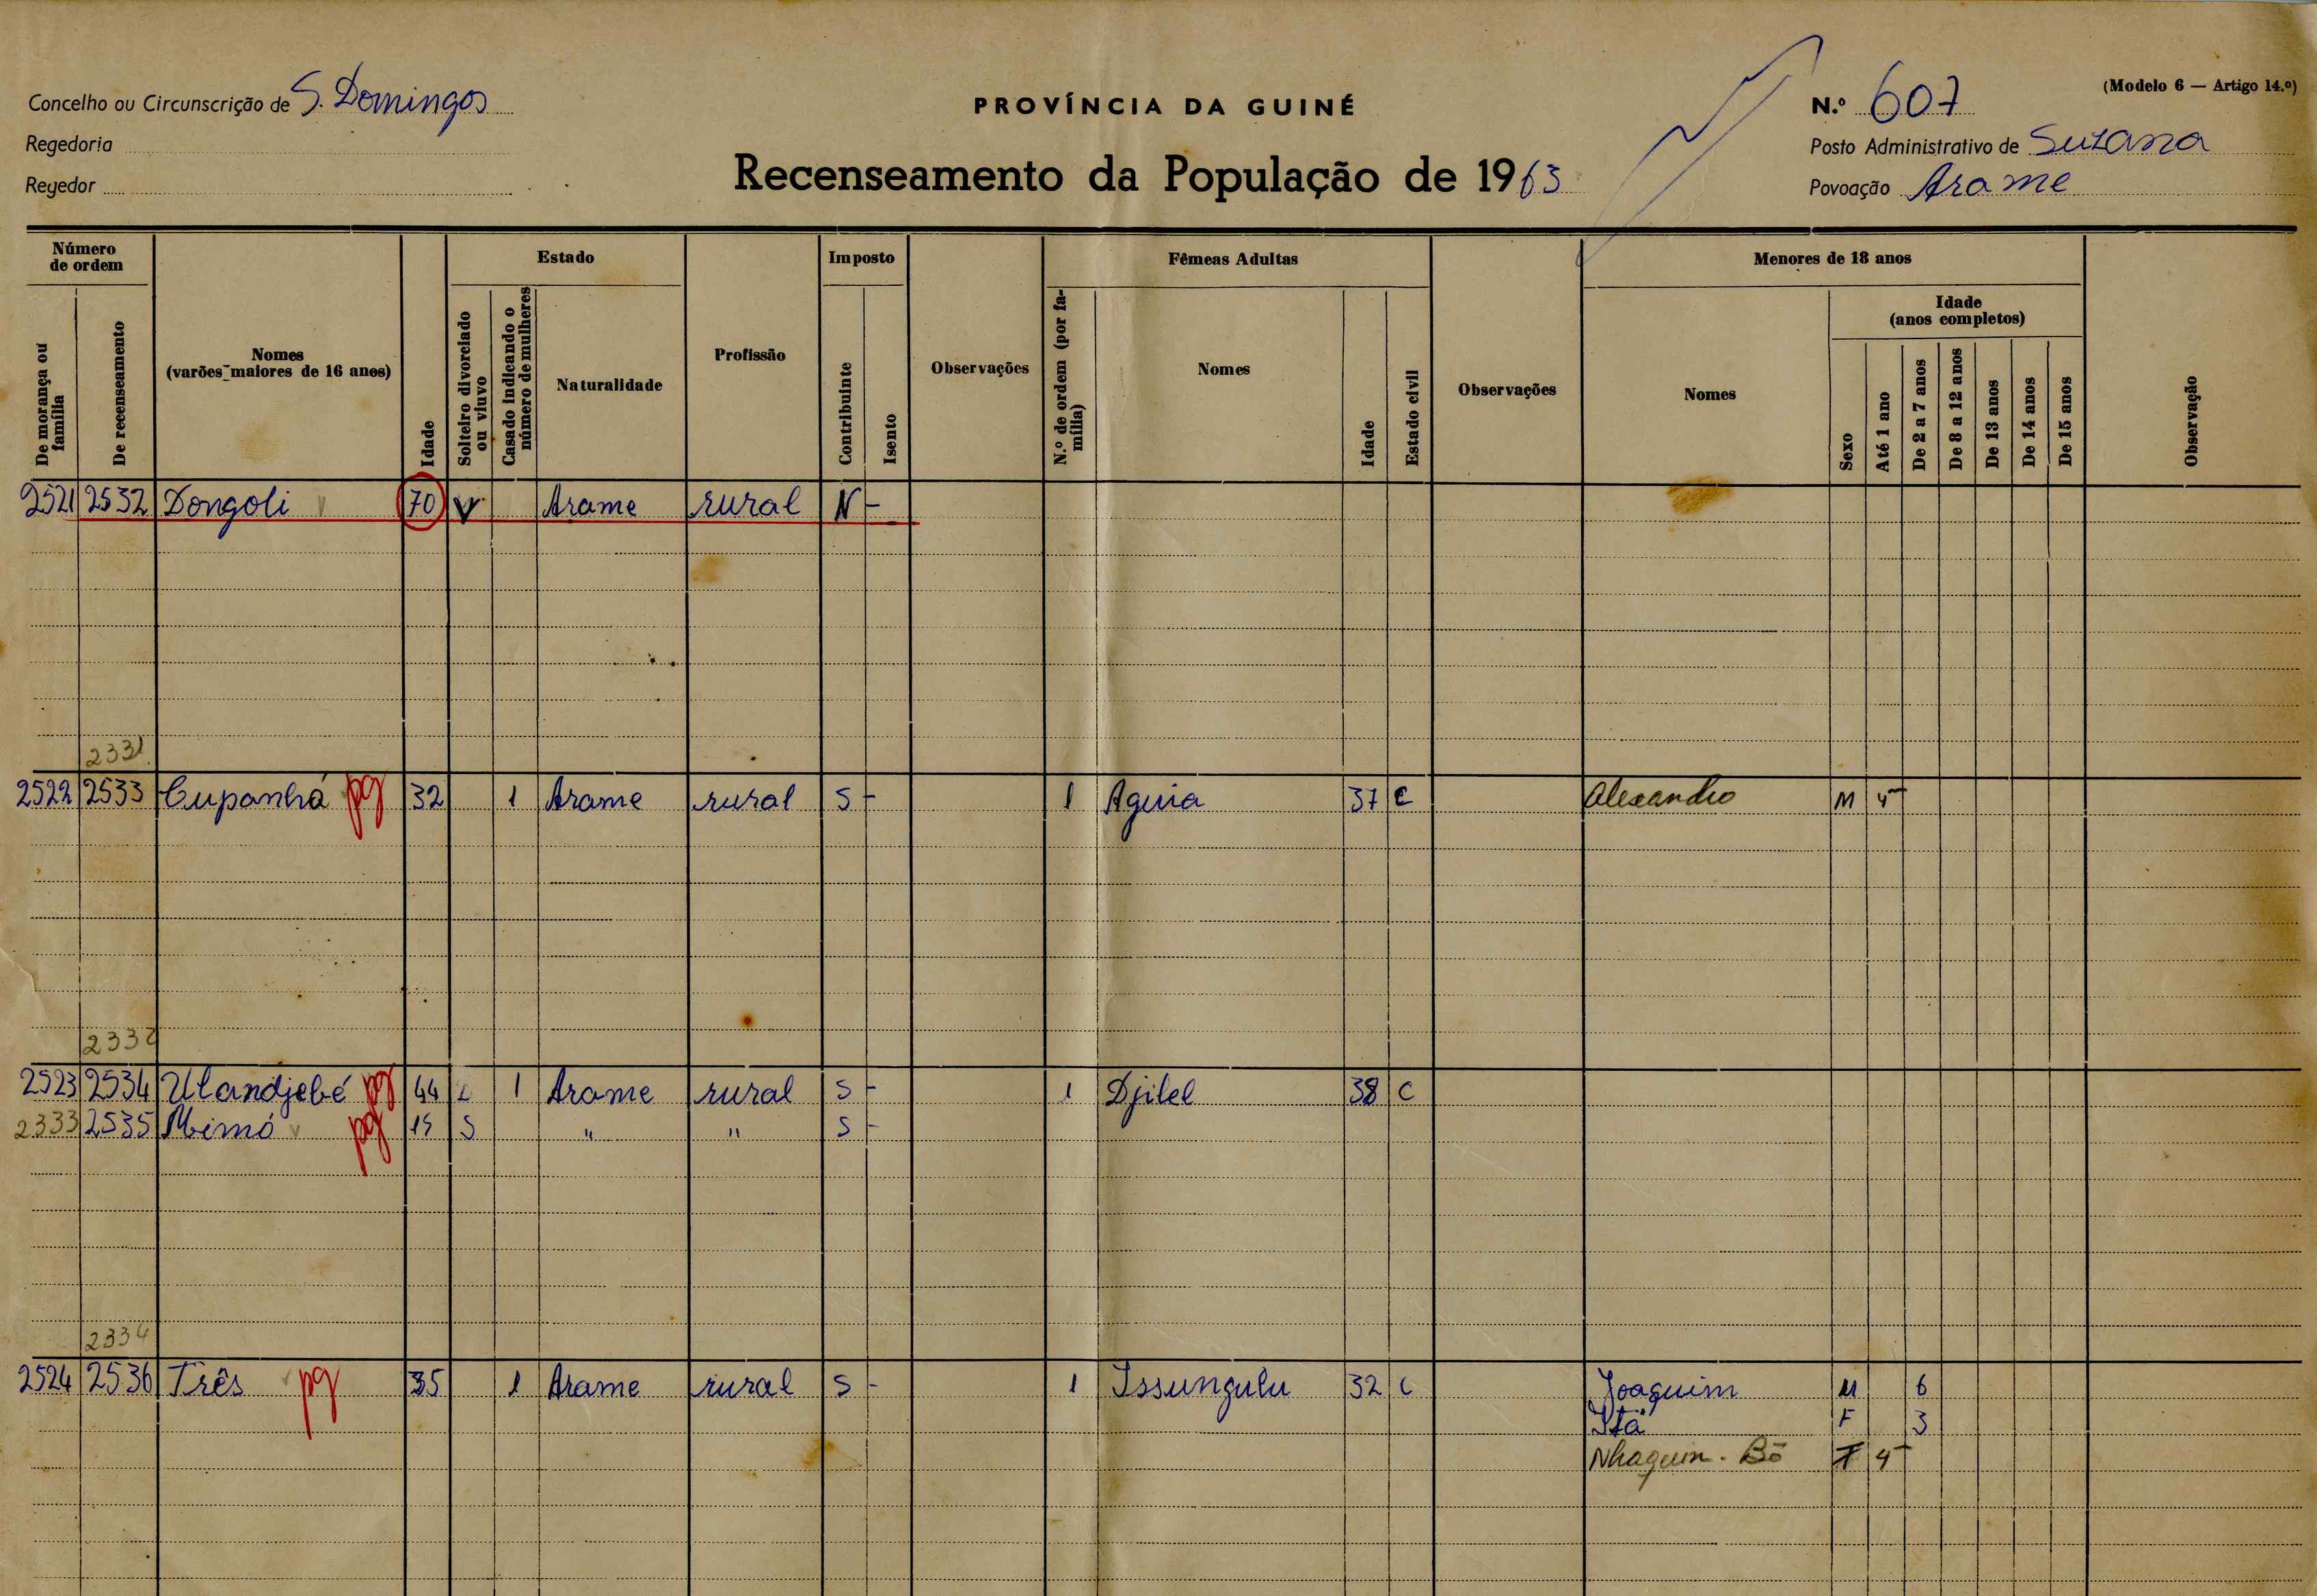 Concelho ou Circunscrição de S. Domingos
Regedoria
Regedor
PROVÍNCIA DA GUINÉ
Recenseamento da População de 1963
(Modelo 6 — Artigo 14.º)
N.º 607
Posto Administrativo de Suzana
Povoação Arame
Número de ordem
De morança ou família
De recenseamento
Nomes
(varões maiores de 16 anos)
Idade
Estado
Solteiro divorciado ou viuvo
Casado indicando o número de mulheres
Naturalidade
Profissão
Imposto
Contribuinte
Isento
Observações
Fêmeas Adultas
N.º de ordem (por família)
Nomes
Idade
Estado civil
Observações
Menores de 18 anos
Nomes
Sexo
Idade
(anos completos)
Até 1 ano
De 2 a 7 anos
De 8 a 12 anos
De 13 anos
De 14 anos
De 15 anos
Observação
2521 2532 Dongoli v 70 V Arame rural N -
2331
2522 2533 Cupanhá pg 32 1 Arame rural S - 1 Aguia 37 C Alexandro M
2332
2523 2534 Ulandjebé pg 44 1 Arame rural S - 1 Djilel 38 C
2333 2535 Mimó v pg S " " S -
2334
2524 2536 Três pg 35 1 Arame rural S - 1 Issungulu 32 C Joaquim M 6
Itá F 3
Nhaquim. Bō F